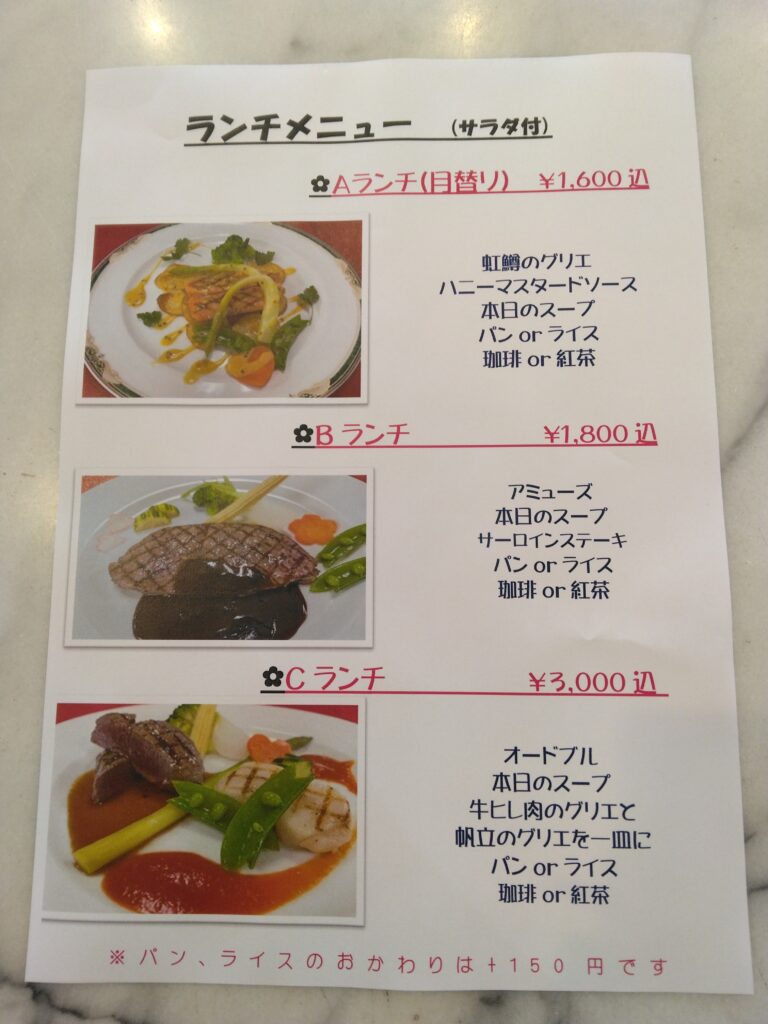 ランチメニュー (サラダ付)
✿Aランチ(日替り) ¥1,600込
虹鱒のグリエ
ハニーマスタードソース
本日のスープ
パン or ライス
珈琲 or 紅茶
✿B ランチ ¥1,800込
アミューズ
本日のスープ
サーロインステーキ
パン or ライス
珈琲 or 紅茶
✿C ランチ ¥3,000込
オードブル
本日のスープ
牛ヒレ肉のグリエと
帆立のグリエを一皿に
パン or ライス
珈琲 or 紅茶
※パン、ライスのおかわりは+150円です